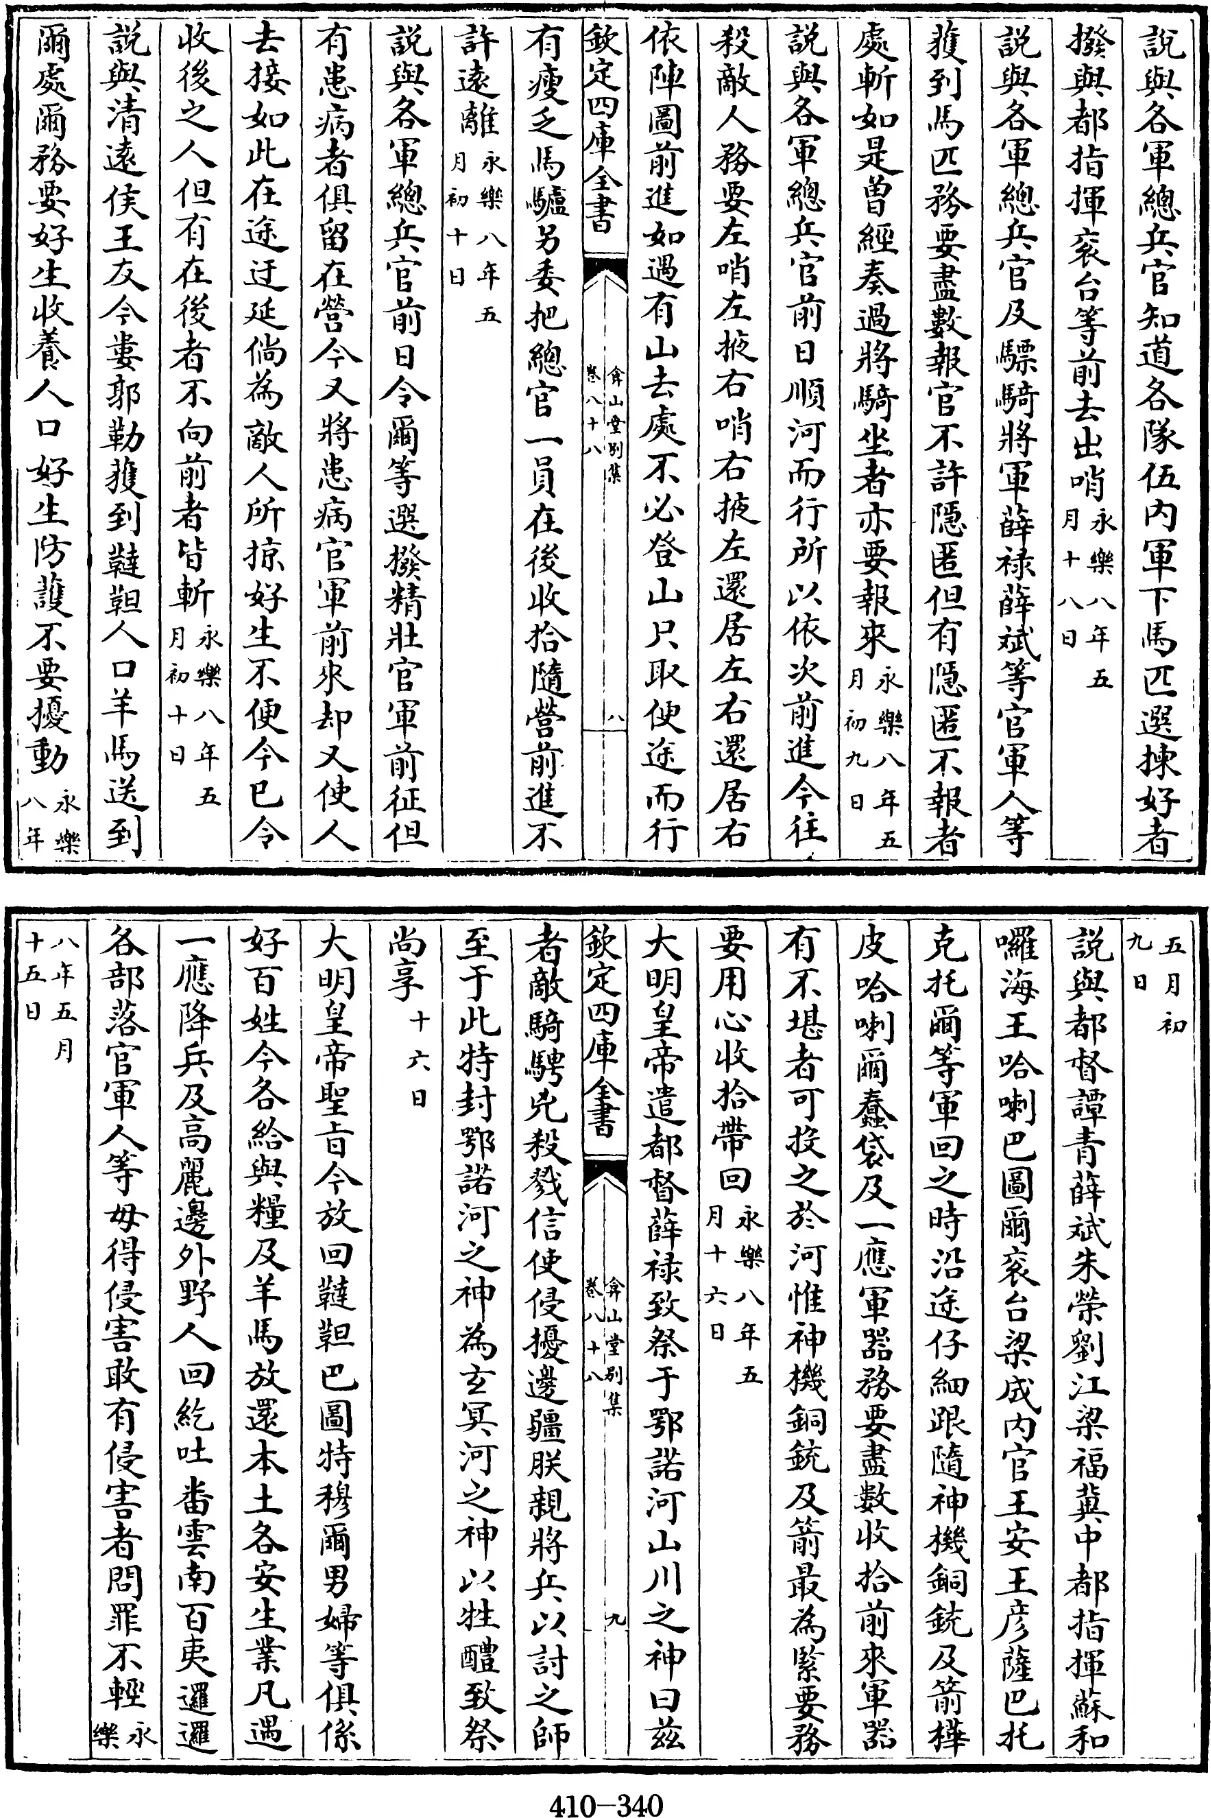 說與各軍總兵官知道各隊伍内軍下馬匹選揀好者
撥與都指揮衮台等前去出哨永樂八年五月十八日
說與各軍總兵官及驃騎將軍薛禄薛斌等官軍人等
獲到馬匹務要盡數報官不許隱匿但有隱匿不報者
處斬如是曾經奏過將騎坐者亦要報來永樂八年五月初九日
說與各軍總兵官前日順河而行所以依次前進今往
殺敵人務要左哨左掖右哨右掖左還居左右還居右
依陣圖前進如遇有山去處不必登山只取便途而行
欽定四庫全書
弇山堂别集
卷八十八
八
有瘦乏馬驢另委把總官一員在後收拾隨營前進不
許遠離永樂八年五月初十日
說與各軍總兵官前日令爾等選撥精壯官軍前征但
有患病者俱留在營今又將患病官軍前來却又使人
去接如此在途迂延倘為敵人所掠好生不便今已令
收後之人但有在後者不向前者皆斬永樂八年五月初十日
說與清遠侯王友今婁郭勒獲到韃靼人口羊馬送到
爾處爾務要好生收養人口好生防護不要擾動永樂八年
五月初九日
說與都督譚青薛斌朱榮劉江梁福冀中都指揮蘇和
囉海王哈喇巴圖爾衮台梁成内官王安王彦薩巴托
克托爾等軍回之時沿途仔細跟隨神機銅銃及箭樺
皮哈喇爾蠢袋及一應軍器務要盡數收拾前來軍器
有不堪者可投之於河惟神機銅銃及箭最為緊要務
要用心收拾帶回永樂八年五月十六日
大明皇帝遣都督薛禄致祭于鄂諾河山川之神曰兹
欽定四庫全書
弇山堂别集
卷八十八
九
者敵騎騁兇殺戮信使侵擾邊疆朕親將兵以討之師
至于此特封鄂諾河之神為玄冥河之神以牲醴致祭
尚享十六日
大明皇帝聖旨今放回韃靼巴圖特穆爾男婦等俱係
好百姓今各給與糧及羊馬放還本土各安生業凡遇
一應降兵及高麗邊外野人回紇吐番雲南百夷邏邏
各部落官軍人等毋得侵害敢有侵害者問罪不輕永樂
八年五月十五日
410-340